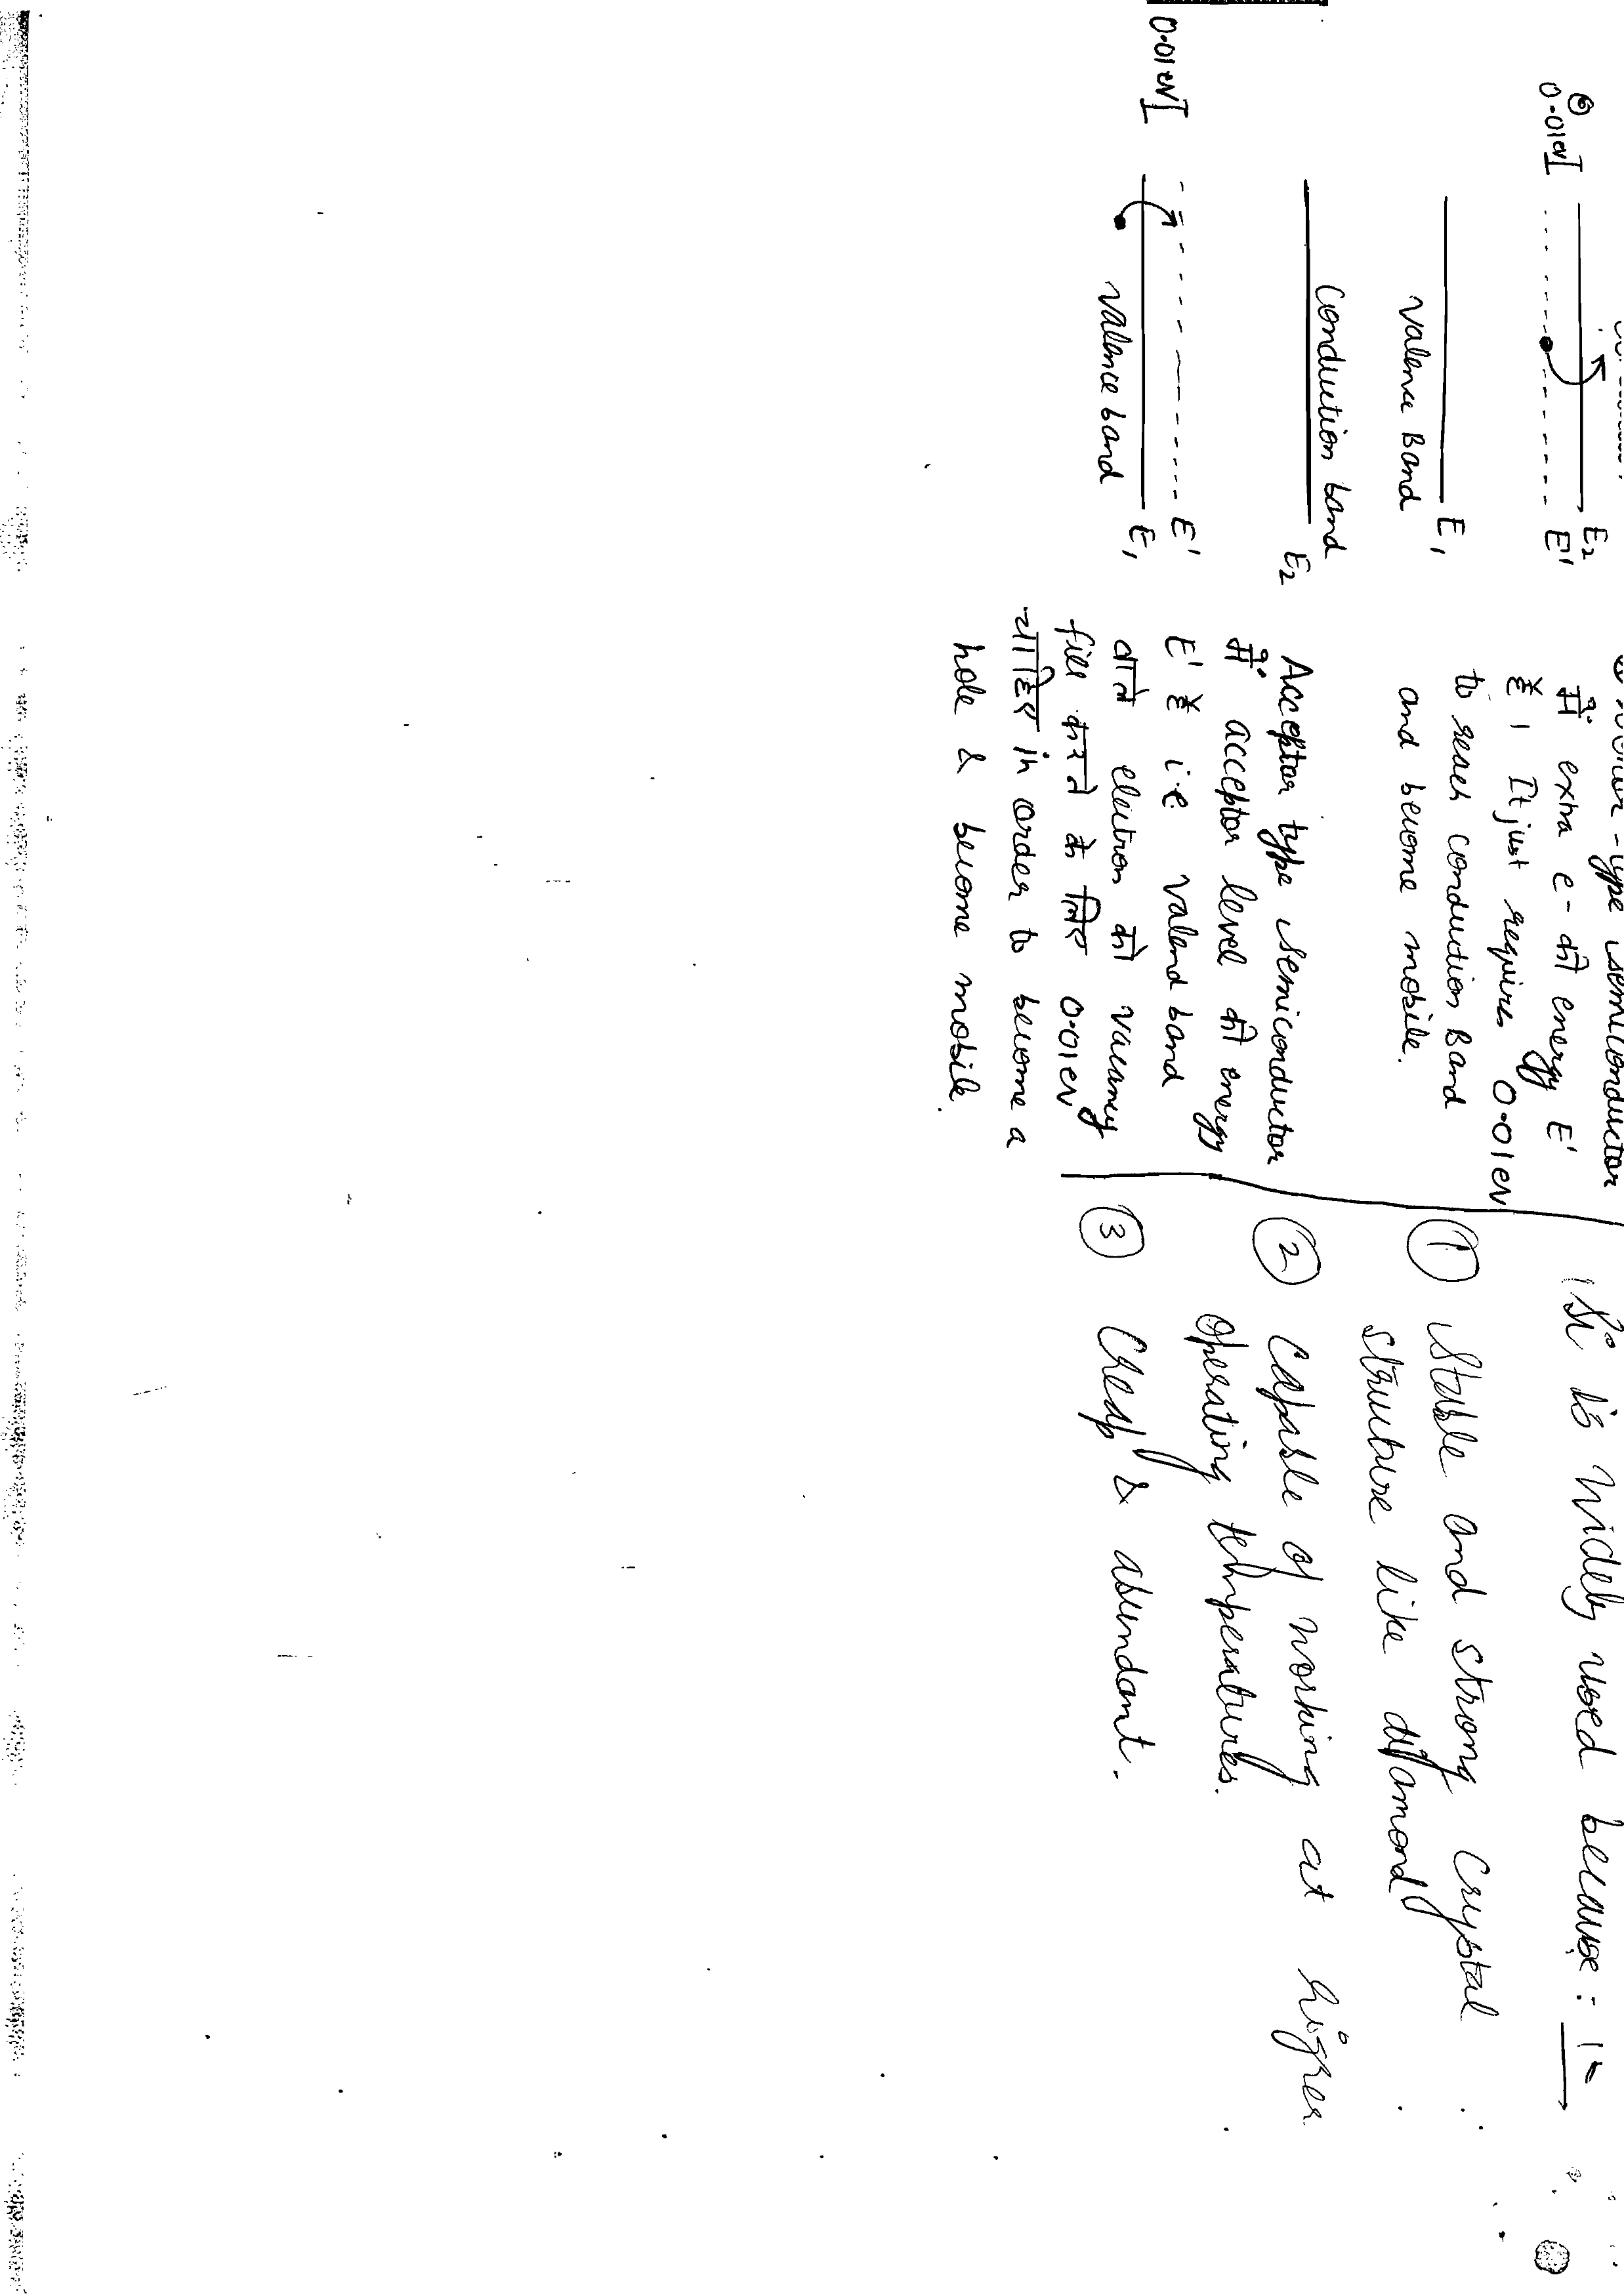 0.01eV
E2
E'
E1
Valence Band
Conduction band
E2
0.01eV
E'
E1
Valence band
type semiconductor
में extra e- की energy E'
है। It just requires 0.01ev
to reach conduction Band
and become mobile.
Acceptor type semiconductor
में acceptor level की energy
E' है i.e valend band
electron की vacancy
fill करने के लिए 0.01ev
चाहिए in order to become a
hole & become mobile.
Si is widely used because :-
① Stable and strong Crystal
structure like diamond
② Capable of working at higher
operating temperatures.
③ Cheap & abundant.